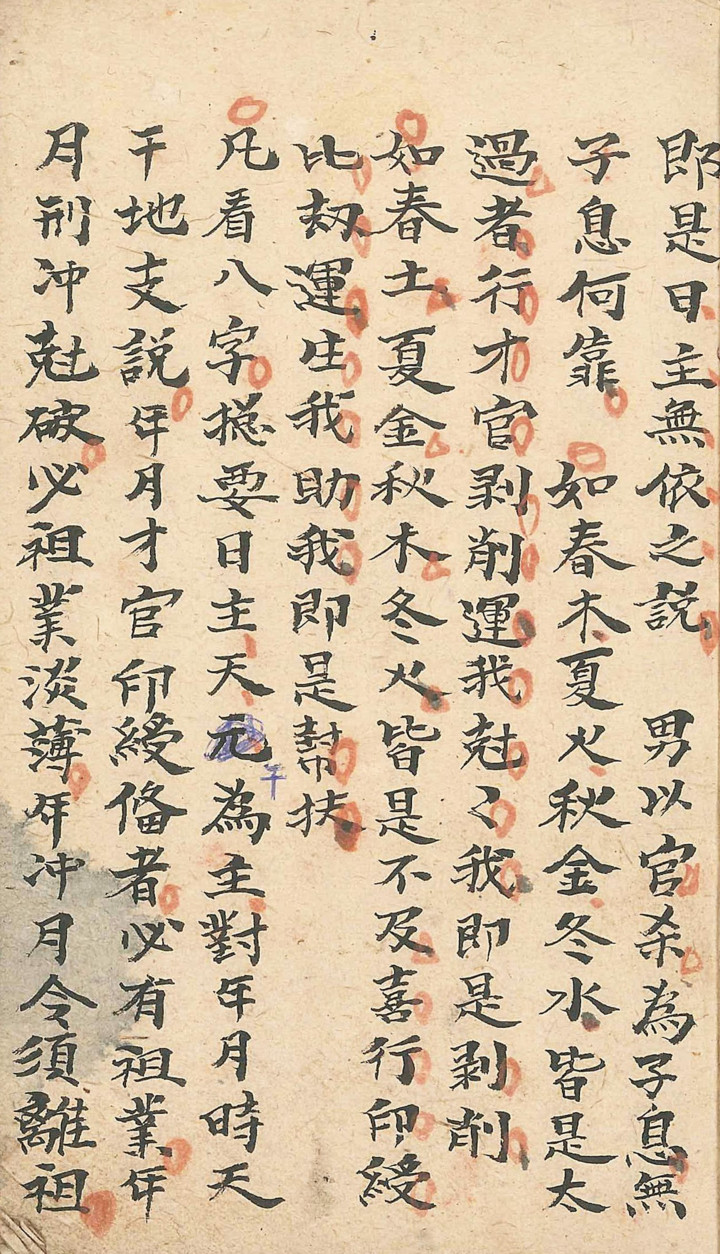 即是日主無依之説　男以官杀為子息無
子息何靠　如春木夏火秋金冬水皆是太
過者行才官剥削運我尅〻我即是剥削
如春土夏金秋木冬火皆是不及喜行印綬
比刼運生我助我即是幇扶
凡看八字摠要日主天元干為主對年月時天
干地支説年月才官印綬俻者必有祖業年
月刑冲尅破必祖業淡薄年冲月令須離祖